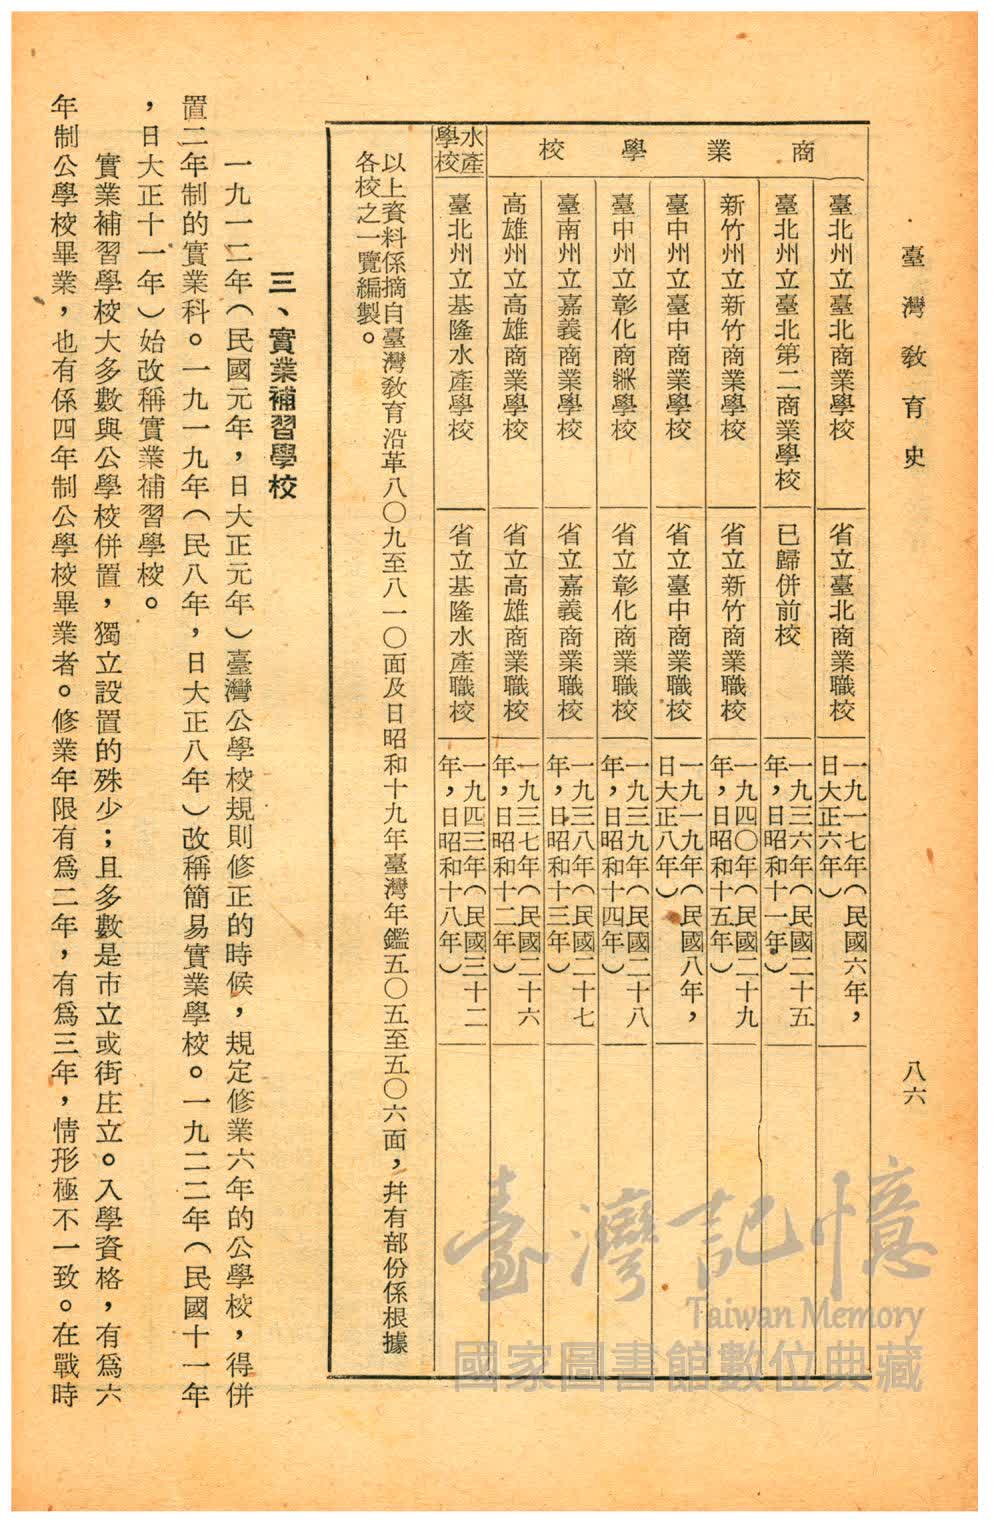 臺灣教育史
八六
商業學校
臺北州立臺北商業學校
省立臺北商業職校
一九一七年（民國六年，
日大正六年）
臺北州立臺北第二商業學校
已歸併前校
一九三六年（民國二十五
年，日昭和十一年）
新竹州立新竹商業學校
省立新竹商業職校
一九四〇年（民國二十九
年，日昭和十五年）
臺中州立臺中商業學校
省立臺中商業職校
一九一九年（民國八年，
日大正八年）
臺中州立彰化商業學校
省立彰化商業職校
一九三九年（民國二十八
年，日昭和十四年）
臺南州立嘉義商業學校
省立嘉義商業職校
一九三八年（民國二十七
年，日昭和十三年）
高雄州立高雄商業學校
省立高雄商業職校
一九三七年（民國二十六
年，日昭和十二年）
水產
學校
臺北州立基隆水產學校
省立基隆水產職校
一九四三年（民國三十二
年，日昭和十八年）
以上資料係摘自臺灣敎育沿革八〇九至八一〇面及日昭和十九年臺灣年鑑五〇五至五〇六面，幷有部份係根據
各校之一覽編製。
三、實業補習學校
一九一二年（民國元年，日大正元年）臺灣公學校規則修正的時候，規定修業六年的公學校，得併
置二年制的實業科。一九一九年（民八年，日大正八年）改稱簡易實業學校。一九二二年（民國十一年
，日大正十一年）始改稱實業補習學校。
實業補習學校大多數與公學校併置，獨立設置的殊少；且多數是市立或街庄立。入學資格，有爲六
年制公學校畢業，也有係四年制公學校畢業者。修業年限有爲二年，有爲三年，情形極不一致。在戰時
臺灣記憶
Taiwan Memory
國家圖書館數位典藏